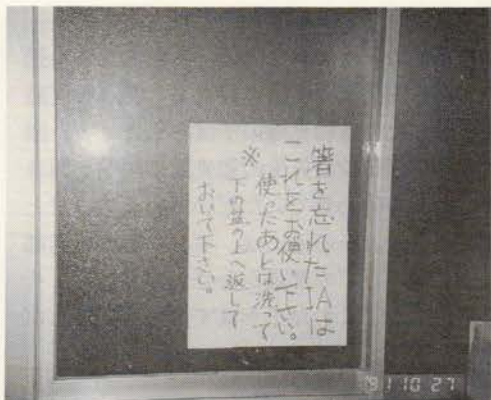 箸を忘れたIAは
これをお使い下さい。
※使ったあとは洗って
下の盆の上へ返して
おいて下さい。
91 10 27